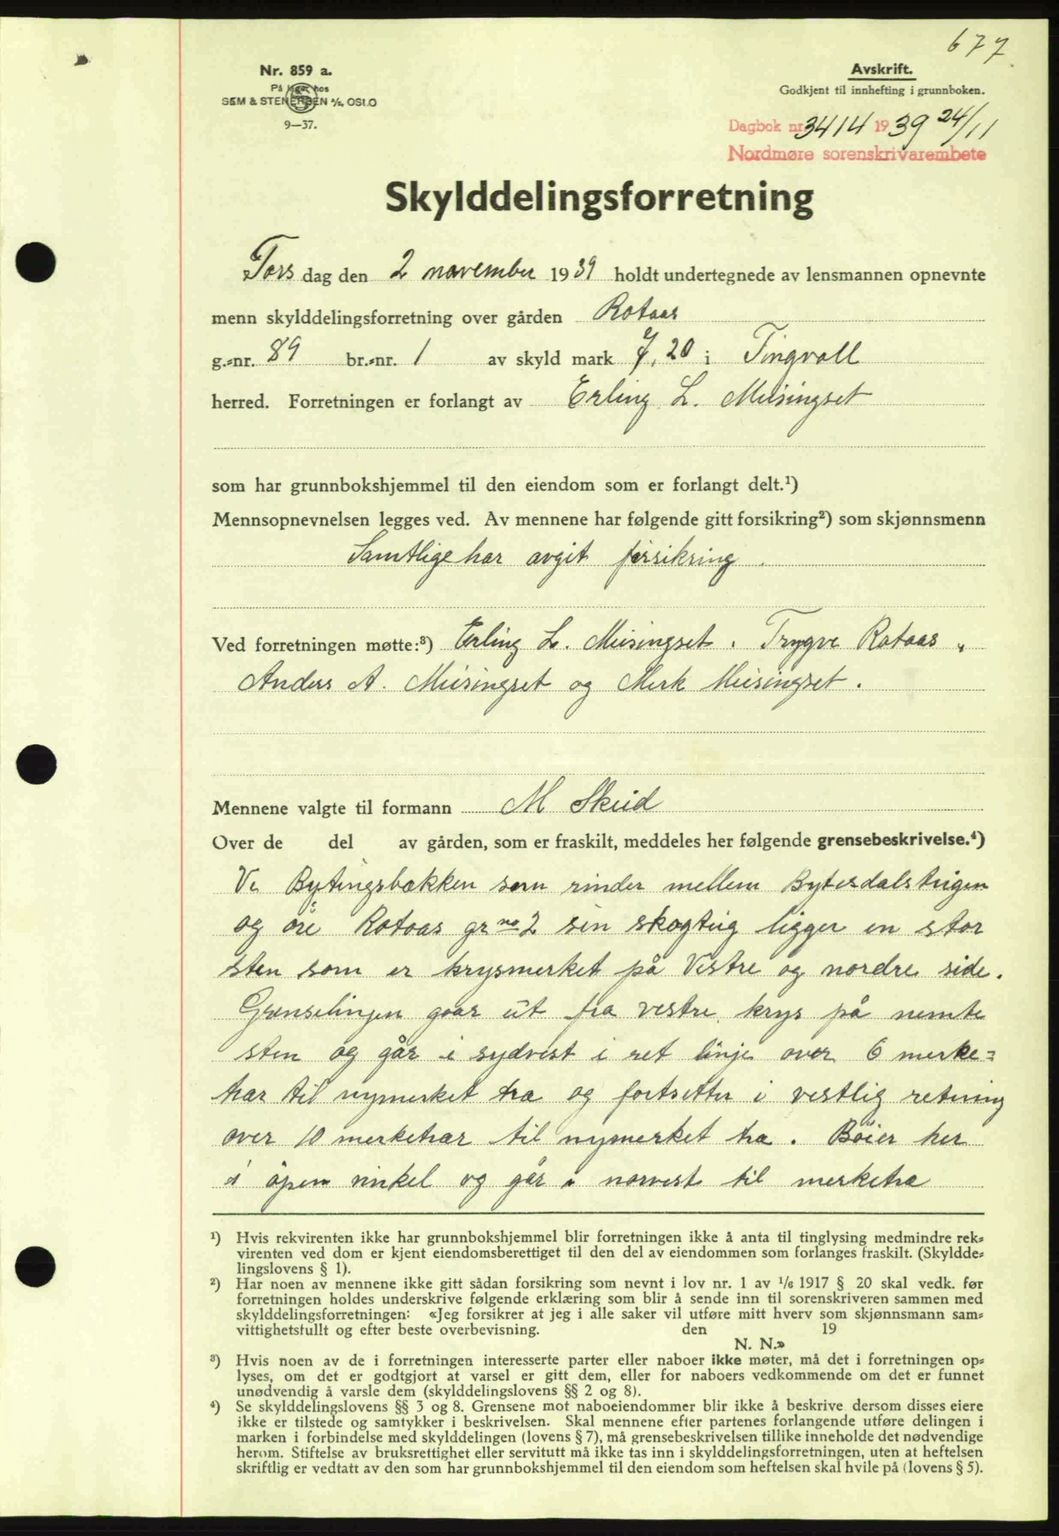 677
Nr. 859 a.
På lager hos
SEM & STENERSEN A/S, OSLO
9—37.
Avskrift.
Godkjent til innhefting i grunnboken.
Dagbok nr. 3414 1939 24/11
Nordmøre sorenskrivarembete
Skylddelingsforretning
Torsdag den 2 november 1939 holdt undertegnede av lensmannen opnevnte
menn skylddelingsforretning over gården Rotaas
g.-nr. 89 br.-nr. 1 av skyld mark 7,20 i Tingvoll
herred. Forretningen er forlangt av Erling L. Meisingset
som har grunnbokshjemmel til den eiendom som er forlangt delt.¹)
Mennsopnevnelsen legges ved. Av mennene har følgende gitt forsikring²) som skjønnsmenn
Samtlige har avgit forsikring.
Ved forretningen møtte:³) Erling L. Meisingset. Trygve Rotaas,
Anders A. Meisingset og Merk Meisingset.
Mennene valgte til formann M Skeid
Over de del av gården, som er fraskilt, meddeles her følgende grensebeskrivelse.⁴)
Ve Bytingsbækken som rinder mellem
og øre Rotaas gr no 2 sin skogteig ligger en stor
sten som er krysmerket på Vestre og nordre side.
Grenselinjen gaar ut fra vestre krys på nemte
sten og går i sydvest i ret linje over 6 merke=
trær til nymerket tra og fortsetter i vestlig retning
over 10 merketrær til nymerket tra. Bøier her
i åpen vinkel og går i norvest til merketra
¹) Hvis rekvirenten ikke har grunnbokshjemmel blir forretningen ikke å anta til tinglysing medmindre rek-
virenten ved dom er kjent eiendomsberettiget til den del av eiendommen som forlanges fraskilt. (Skyldde-
lingslovens § 1).
²) Har noen av mennene ikke gitt sådan forsikring som nevnt i lov nr. 1 av 1/6 1917 § 20 skal vedk. før
forretningen holdes underskrive følgende erklæring som blir å sende inn til sorenskriveren sammen med
skylddelingsforretningen: «Jeg forsikrer at jeg i alle saker vil utføre mitt hverv som skjønnsmann sam-
vittighetsfullt og efter beste overbevisning. den 19
N. N.»
³) Hvis noen av de i forretningen interesserte parter eller naboer ikke møter, må det i forretningen op-
lyses, om det er godtgjort at varsel er gitt dem, eller for naboers vedkommende om det er funnet
unødvendig å varsle dem (skylddelingslovens §§ 2 og 8).
⁴) Se skylddelingslovens §§ 3 og 8. Grensene mot naboeiendommer blir ikke å beskrive dersom disses eiere
ikke er tilstede og samtykker i beskrivelsen. Skal mennene efter partenes forlangende utføre delingen i
marken i forbindelse med skylddelingen (lovens § 7), må grensebeskrivelsen tillike inneholde det nødvendige
herom. Stiftelse av bruksrettighet eller servitutt må ikke tas inn i skylddelingsforretningen, uten at heftelsen
skriftlig er vedtatt av den som har grunnbokshjemmel til den eiendom som heftelsen skal hvile på (lovens § 5).